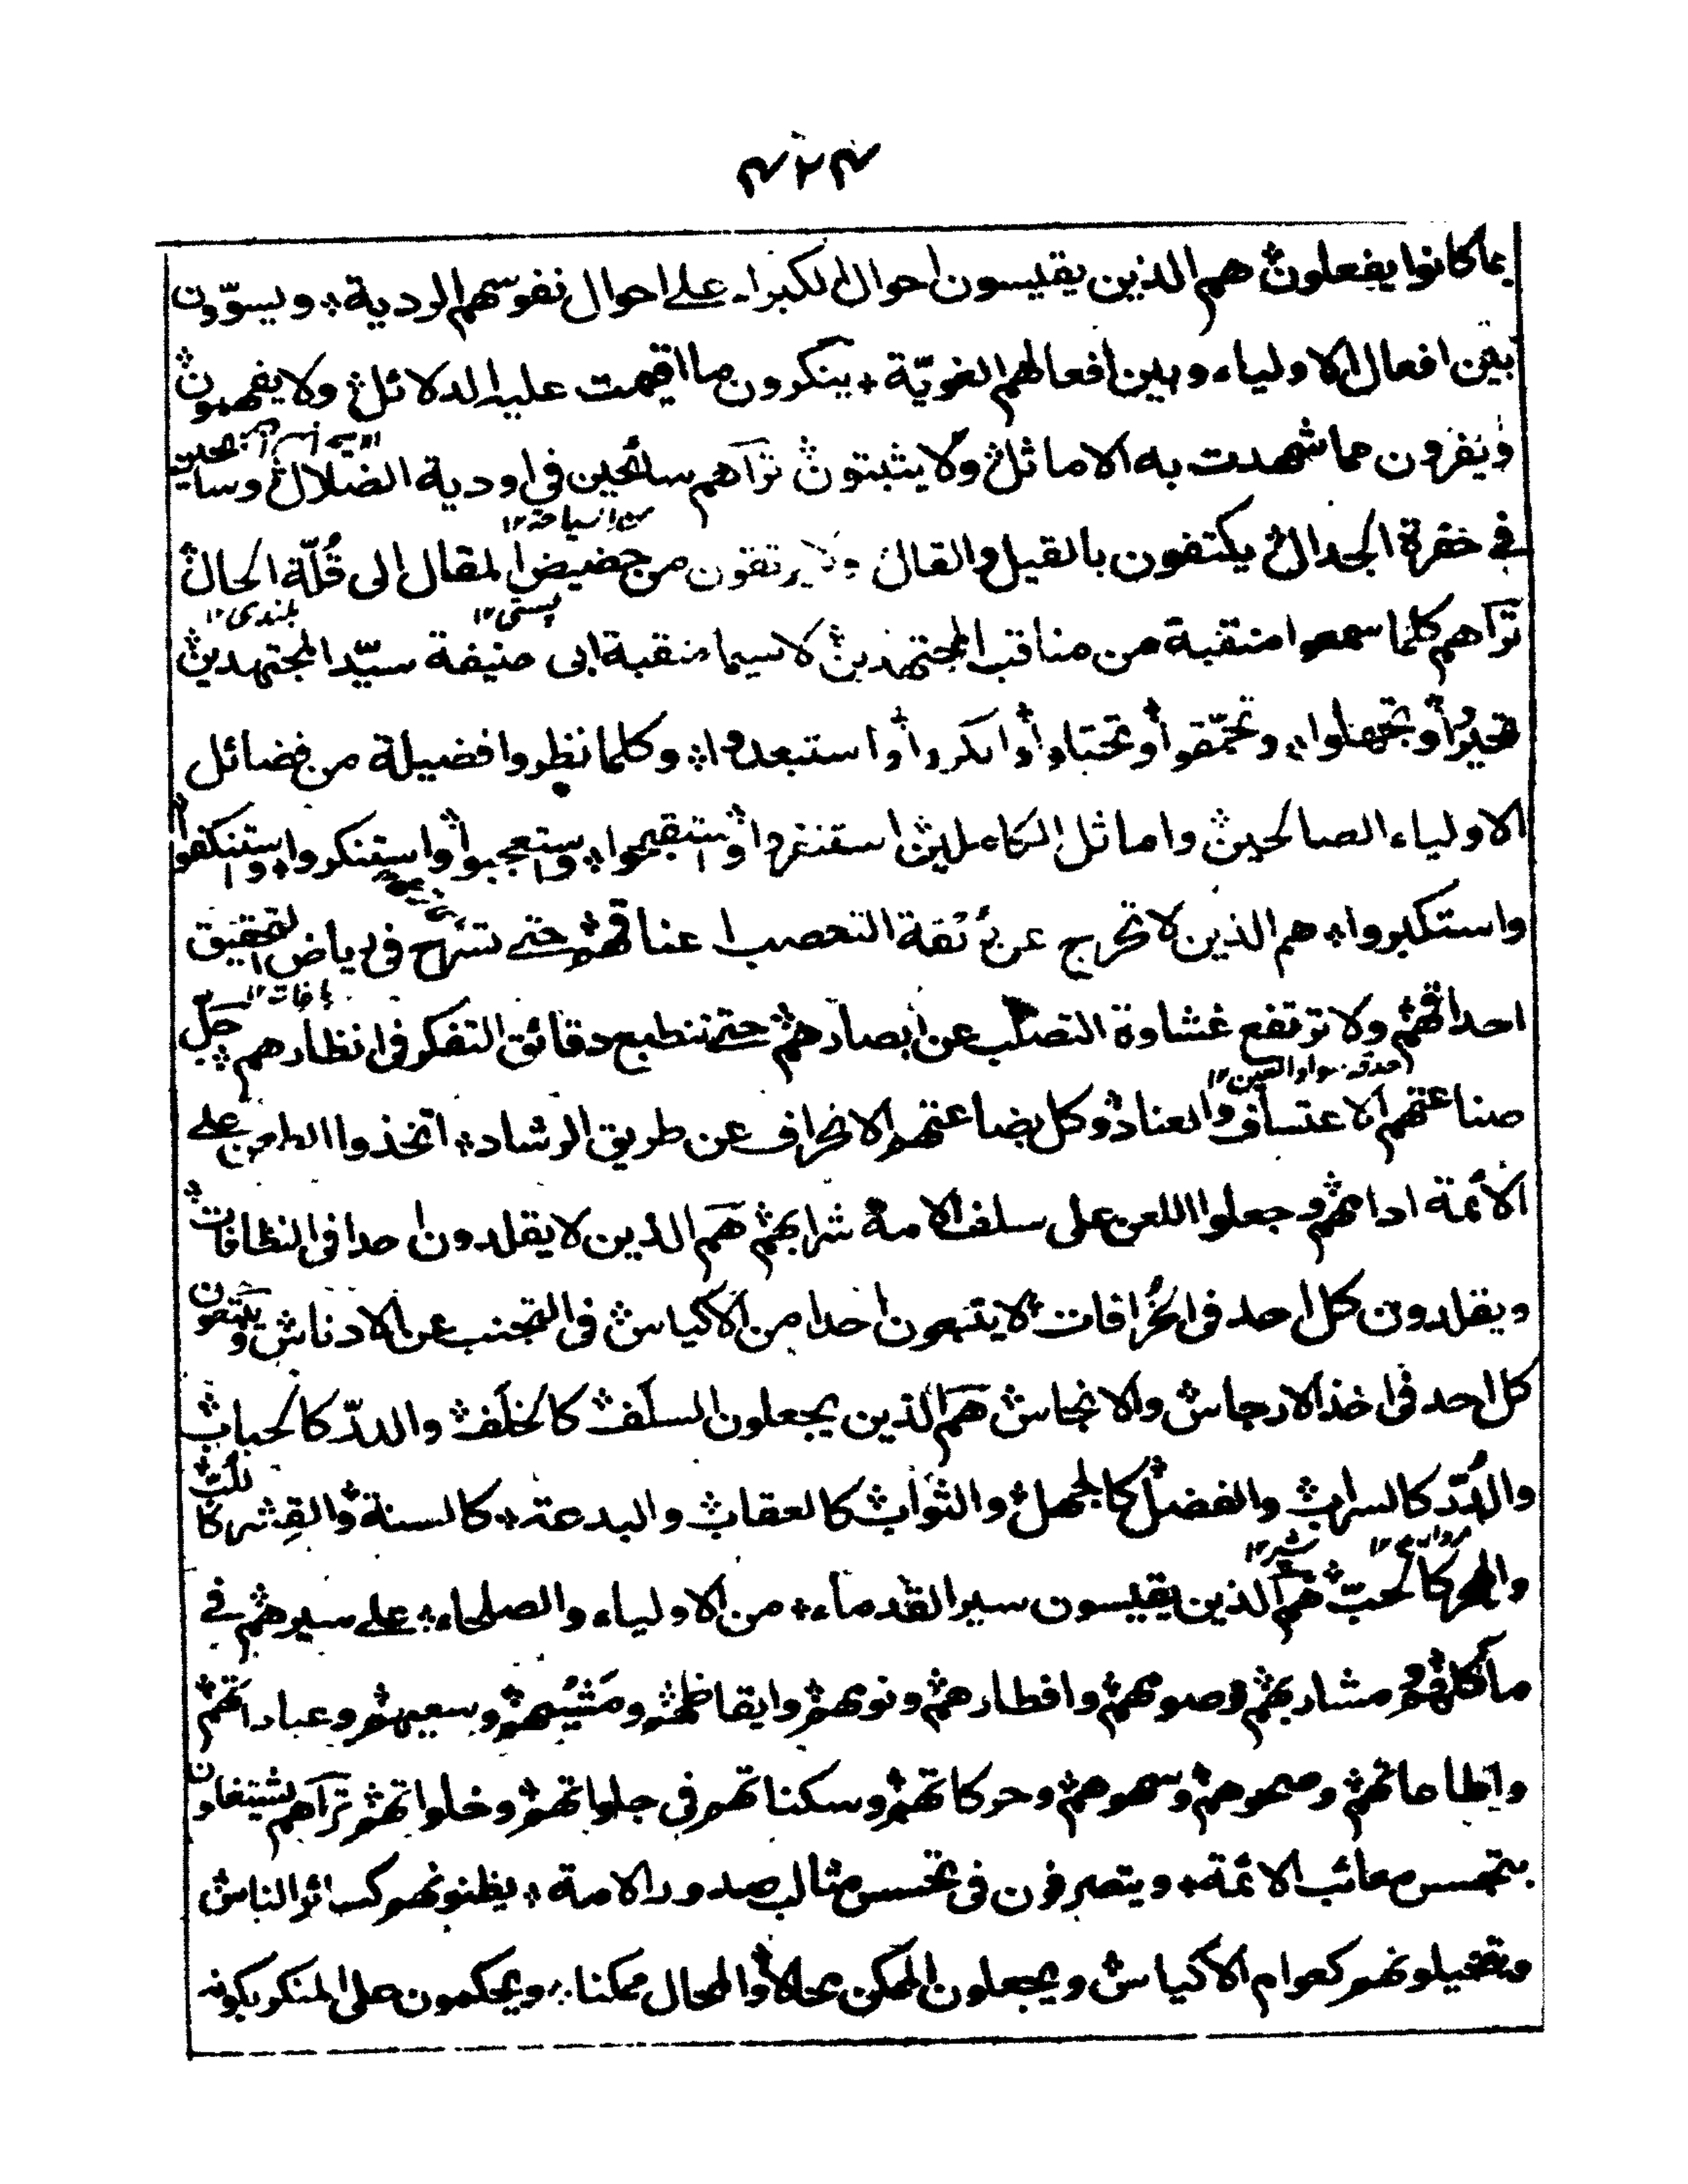 ۴۲۴
بما كانوا يفعلون هم الذين يقيسون احوال الكبراء على احوال نفوسهم الردية ويسوّون
بين افعال الاولياء وبين افعالهم الغويّة ينكرون ما اقيمت عليه الدلائل ولا يفهمون
ويفرون مما شهدت به الاماثل ولا يثبتون تراهم سائحين في اودية الضلال
من السياحة ١٢
في حفرة الجدال يكتفون بالقيل والقال ولا يرتقون من حضيض المقال الى قُلّة الحال
پستی ١٢ بلندی ١٢
تراهم كلما سمعوا منقبة من مناقب المجتهدين لا سيما منقبة ابى حنيفة سيّد المجتهدين
تحيروا وتجهلوا وتحمّقوا وانكروا واستبعدوا وكلما نظروا فضيلة من فضائل
الاولياء الصالحين واماثل الكاملين استنفروا واستقبحوا واستعجبوا واستنكروا واستنكفوا
واستكبروا هم الذين لا تخرج عن ربقة التعصب اعناقهم حتى تسرح في رياض التحقيق
باغات ١٢
احداقهم ولا ترتفع غشاوة التصلب عن ابصارهم حتى تنطبع دقائق التفكر في انظارهم جل
حدقہ سواد العين ١٢
صناعتهم الاعتساف والعناد وكل بضاعتهم الانحراف عن طريق الرشاد اتخذوا الطعن على
الائمة ادامهم وجعلوا اللعن على سلف الامة شرابهم هم الذين لا يقلدون احدا في النظافات
ويقلدون كل احد في الخُرافات لا يتبعون احدا من الاكياس في التجنب عن الادناس ويتبعون
كل احد في اخذ الارجاس والانجاس هم الذين يجعلون السلف كالخلَف والدرّ كالحباب
والدُرّ كالسراب والفضل كالجهل والثواب كالعقاب والبدعة كالسنة والقِشر كاللُبّ
مروارید ١٢
كالحبّ هم الذين يقيسون سير القدماء من الاولياء والصلحاء على سيرهم في
مآكلهم ومشاربهم وصومهم وافطارهم ونومهم وايقاظهم ومَشْيهم وسعيهم وعباداتهم
واطاعاتهم وصحوهم وسهوهم وحركاتهم وسكناتهم في جلواتهم وخلواتهم تراهم يشتغلون
بتجسس معائب الائمة ويتصرفون في تجسس مثالب صدور الامة يظنونهم كسائر الناس
ويتخيلونهم كعوام الاكياس ويجعلون الممكن محالا والمحال ممكنا ويحكمون على المنكر بكونه